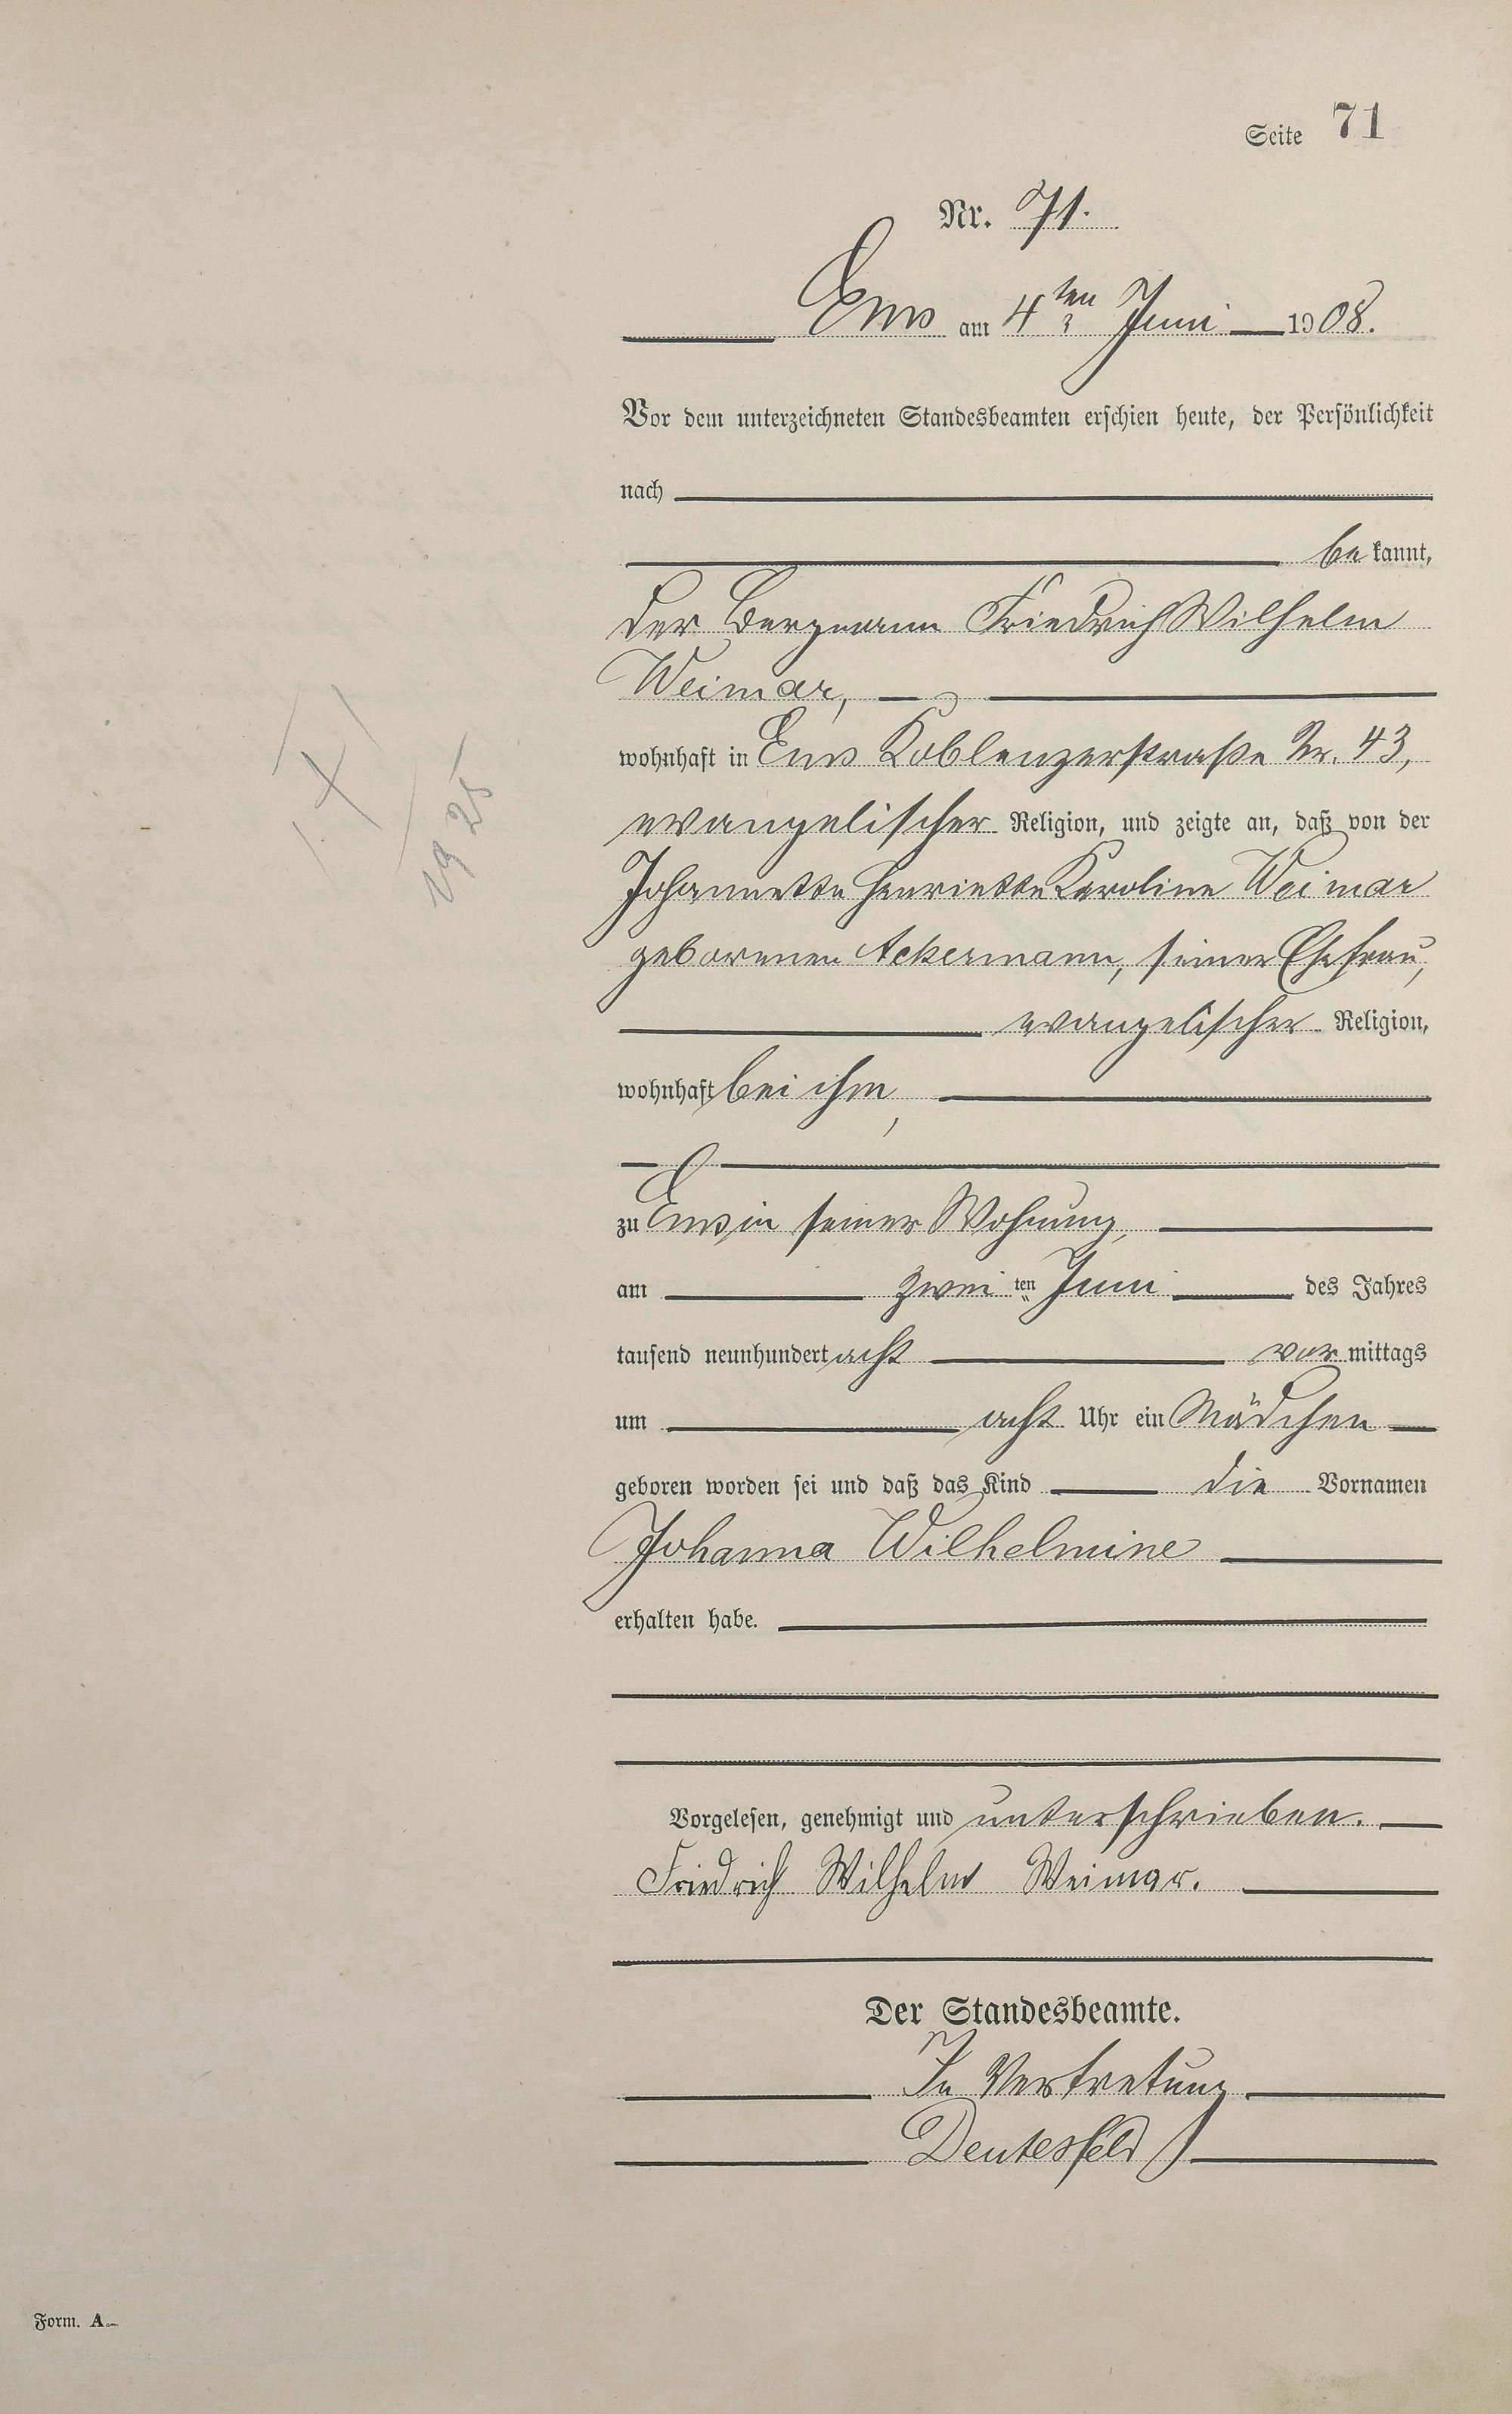 Seite 71
Nr. 71.
Ems am 4ten Juni 1908.
Vor dem unterzeichneten Standesbeamten erschien heute, der Persönlichkeit
nach
be kannt,
der Bergmann Friedrich Wilhelm
Weimar,
wohnhaft in Ems Koblenzerstraße Nr. 43,
evangelischer Religion, und zeigte an, daß von der
Johannette Henriette Karoline Weimar
geborenen Ackermann, seiner Ehefrau,
evangelischer Religion,
wohnhaft bei ihm,
zu Ems in seiner Wohnung,
am zwei ten Juni des Jahres
tausend neunhundert acht vor mittags
um acht Uhr ein Mädchen
geboren worden sei und daß das Kind die Vornamen
Johanna Wilhelmine
erhalten habe.
Vorgelesen, genehmigt und unterschrieben.
Friedrich Wilhelm Weimar.
Der Standesbeamte.
In Vertretung
Deutesfeld
1925
Form. A.